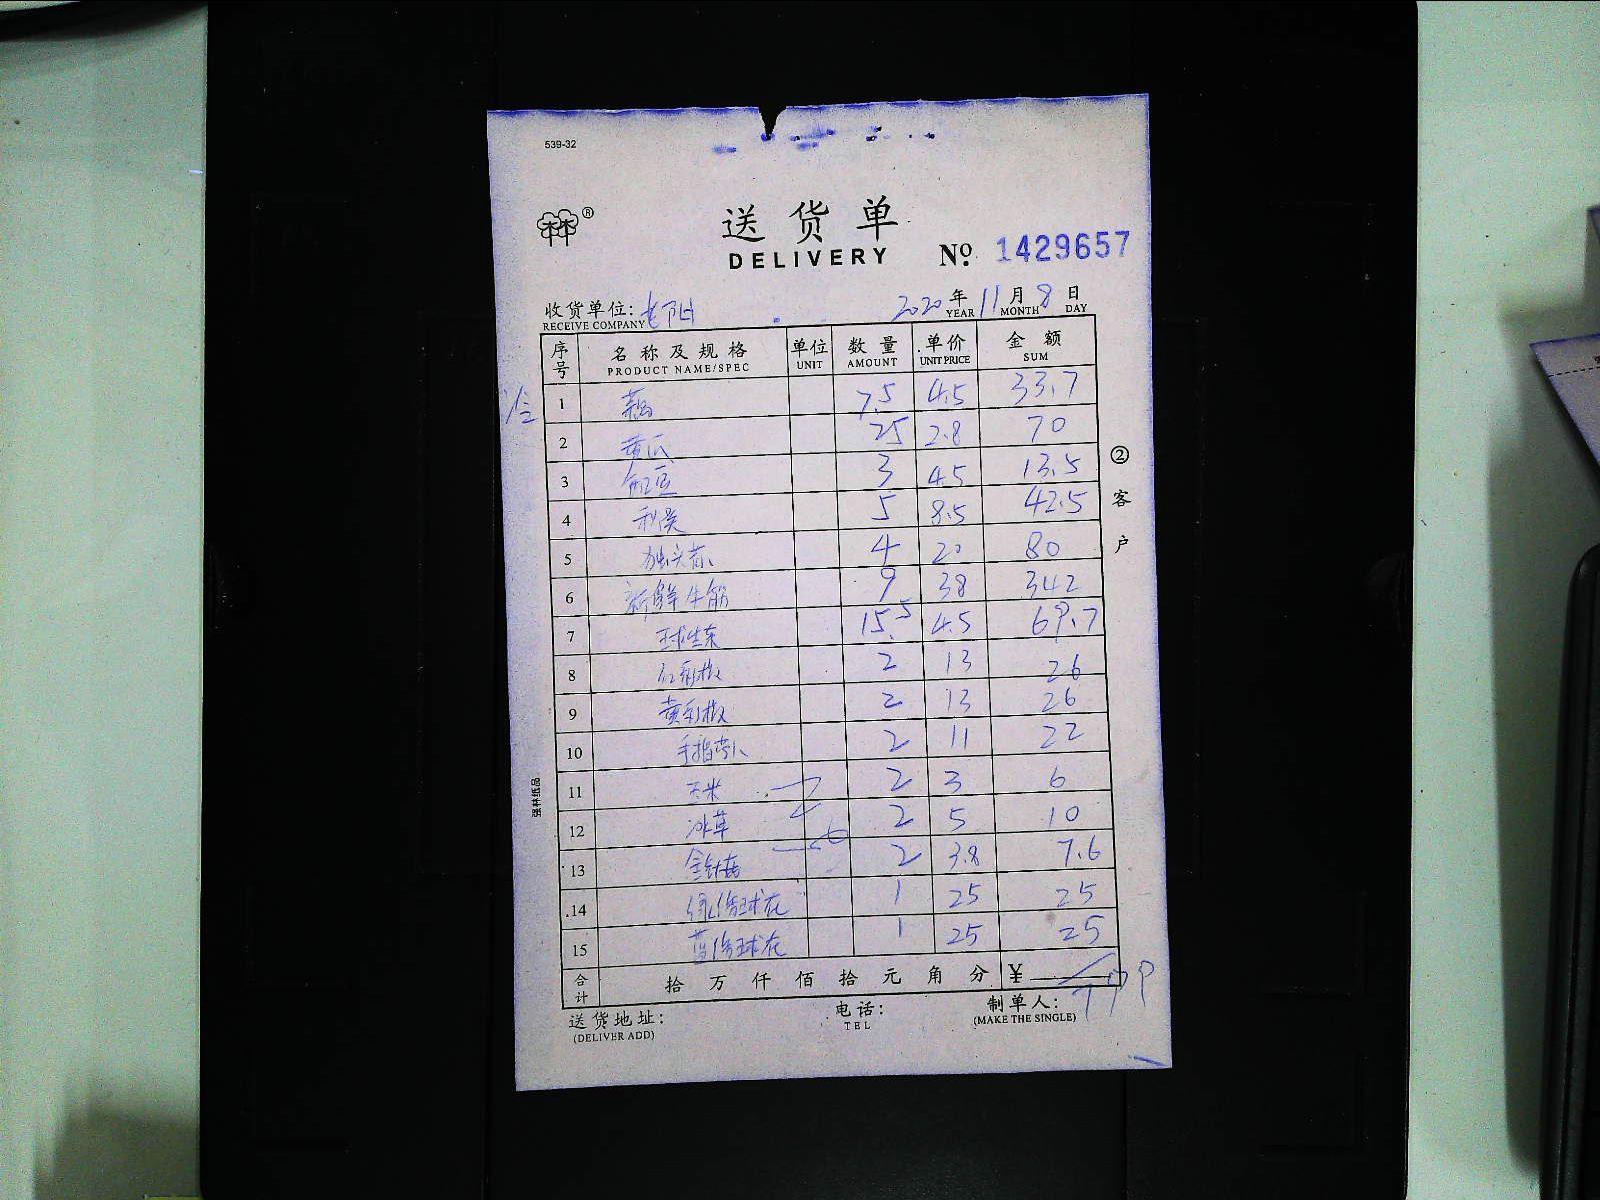 539-32
®
送货单
DELIVERY № 1429657
收货单位: 2020年11月8日
RECEIVE COMPANY YEAR MONTH DAY
序号 名称及规格 单位 数量 单价 金额
PRODUCT NAME/SPEC UNIT AMOUNT UNIT PRICE SUM
1 7.5 4.5 33.7
2 黄瓜 25 2.8 70
3 缸豆 3 4.5 13.5
4 5 8.5 42.5
5 独头 4 20 80
6 新鲜牛筋 9 38 342
7 球生菜 15.5 4.5 69.7
8 红彩椒 2 13 26
9 黄彩椒 2 13 26
10 手指 2 11 22
11 玉米 2 3 6
12 冰草 2 5 10
13 金针菇 2 3.8 7.6
14 绣球花 1 25 25
15 蓝绣球花 1 25 25
合计 拾万仟佰拾元角分 ¥ 799
送货地址: 电话: 制单人:
(DELIVER ADD) TEL (MAKE THE SINGLE)
②客户
强林纸品